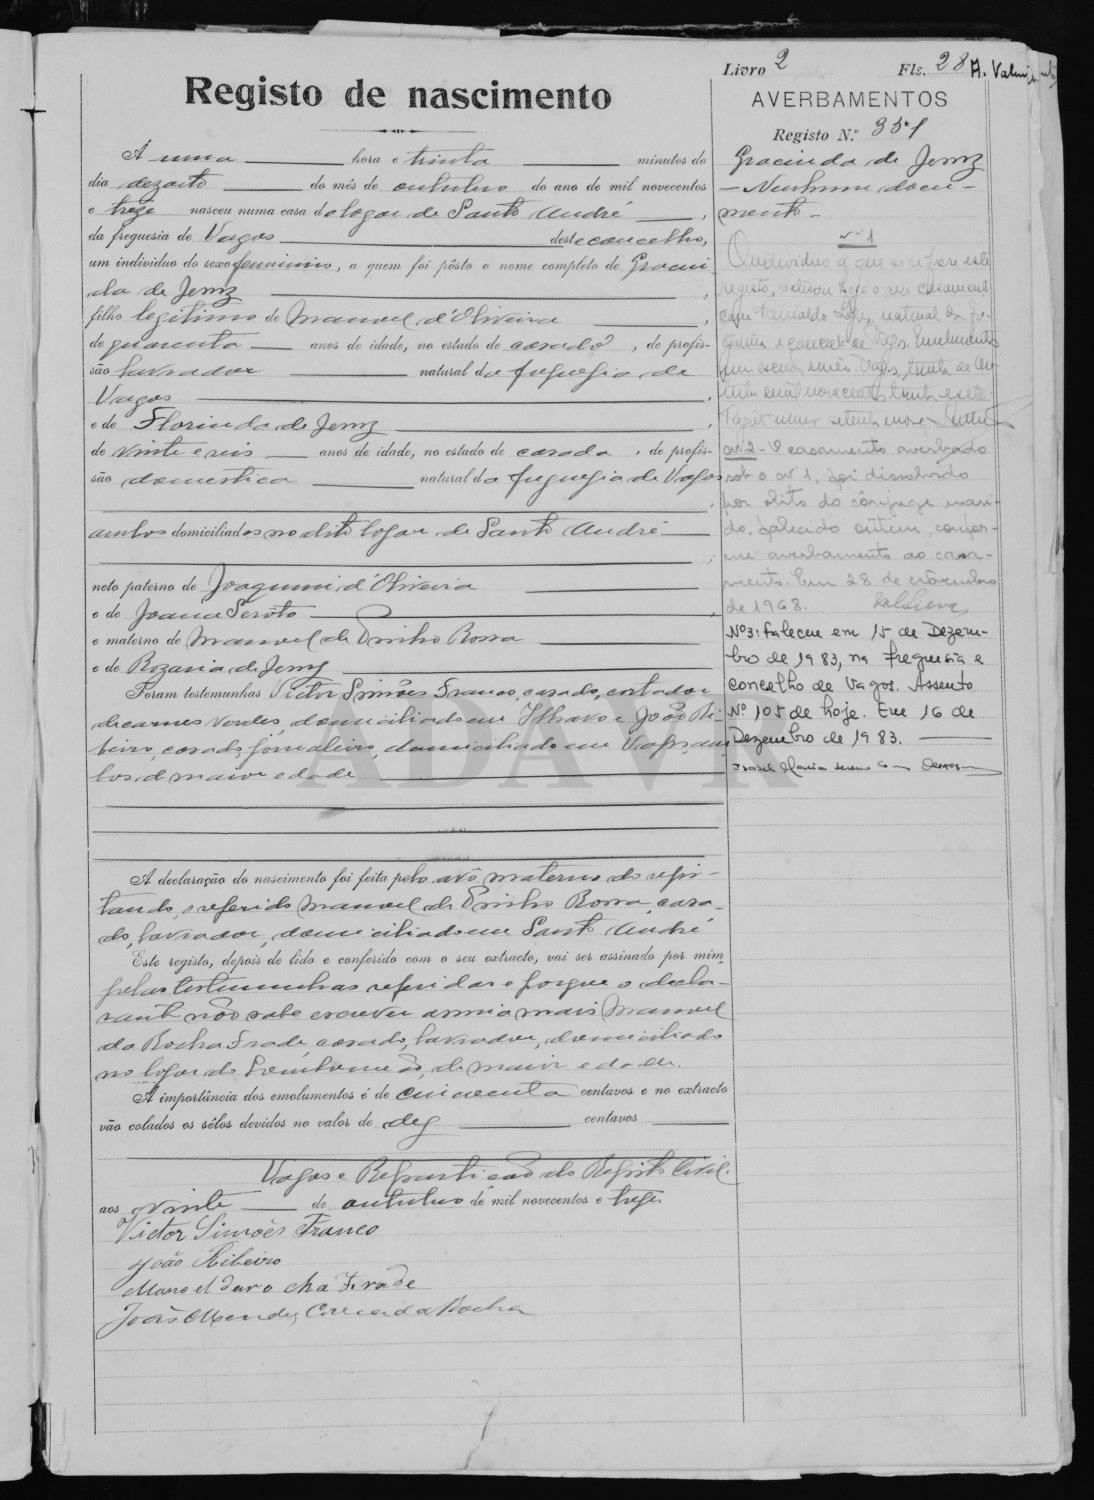 Livro 2 Fls. 28
Registo de nascimento
A uma hora e trinta minutos do
dia dezoito do mês de outubro do ano de mil novecentos
e treze nasceu numa casa do logar de Santo André,
da freguesia de Vagos deste concelho,
um individuo do sexo feminino, a quem foi pôsto o nome completo de Gracin-
da de Jesus,
filho legitimo de Manuel d'Oliveira,
de quarenta anos de idade, no estado de casado, de profis-
são lavrador natural da freguesia de
Vagos,
e de Florinda de Jesus,
de vinte e seis anos de idade, no estado de casada, de profis-
são domestica natural da freguesia de Vagos
,
ambos domiciliados no dito logar de Santo André
;
neto paterno de Joaquim d'Oliveira
e de Joana Serôto,
e materno de Manuel de Pinho Rossa
e de Rozaria de Jesus
Foram testemunhas Victor Simões Franco, casado, cortador
de carnes verdes, domiciliado em Ilhavo e João Ri-
beiro, casado, jornaleiro, domiciliado em Vagos am-
bos de maior edade
A declaração do nascimento foi feita pelo avô materno do regis-
tando, o referido Manuel de Pinho Rossa, casa-
do, lavrador, domiciliado em Santo André
Este registo, depois de lido e conferido com o seu extracto, vai ser assinado por mim,
pelas testemunhas referidas e porque o decla-
rante não sabe escrever assina mais Manuel
da Rocha Frade, casado, lavrador, domiciliado
no logar do Lombomeão, de maior edade.
A importância dos emolumentos é de cincoenta centavos e no extracto
vão colados os sêlos devidos no valor de dez centavos
Vagos e Repartição do Registo Civil.
aos vinte de outubro de mil novecentos e treze
Victor Simões Franco
João Ribeiro
Manoel da rocha Frade
João Mendes Correia da Rocha
AVERBAMENTOS
Registo N.º 351
Gracinda de Jesus
— Nenhum docu-
mento —
nº 1
O individuo a que se refere este
registo, celebrou hoje o seu casamento
com Lopes, natural da fre-
guesia e concelho de Vagos. Emolumentos
um escudo Vagos, trinta de
mil novecentos trinta e sete.
nº 2 - O casamento averbado
sob o nº 1, foi dissolvido
por obito do cônjuge mari-
do, falecido ontem, confor-
me averbamento ao casa-
mento. Em 28 de
de 1968.
Nº 3: Faleceu em 15 de Dezem-
bro de 1983, na freguesia e
concelho de Vagos. Assento
Nº 105 de hoje. Em 16 de
Dezembro de 1983.
Isabel Maria
ADAVR